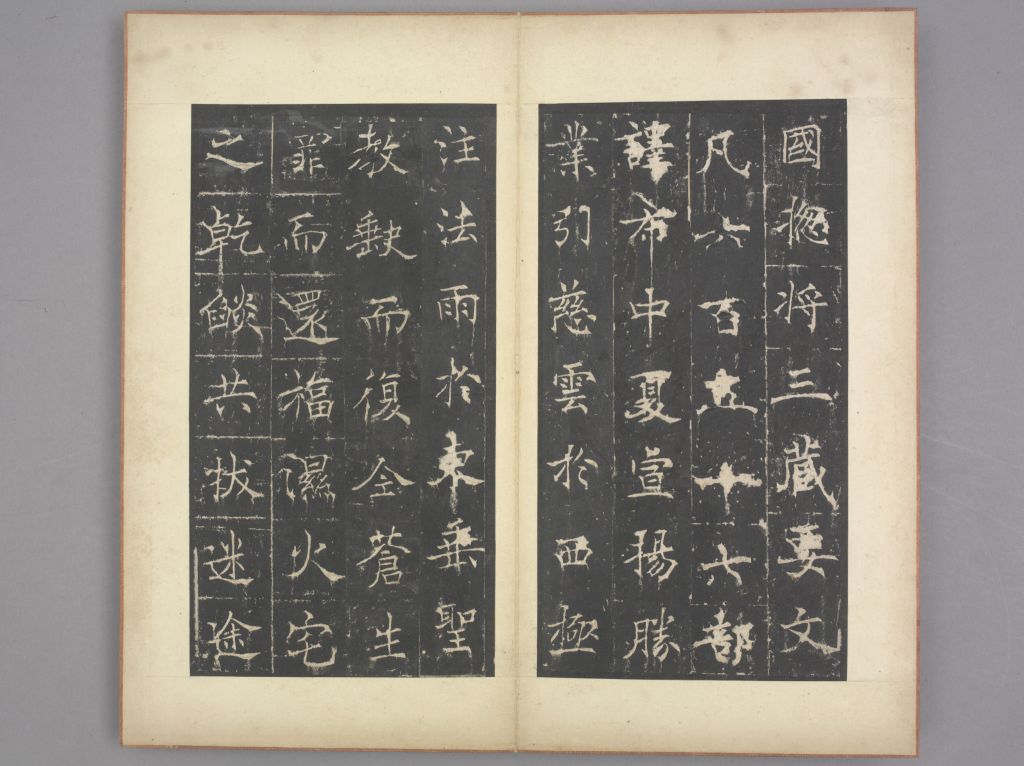 國揔将三藏要文
凡六百五十六部
譯布中夏宣揚勝
業引慈雲於西極
注法雨於東垂聖
教缺而復全蒼生
罪而還福濕火宅
之乾燄共拔迷途